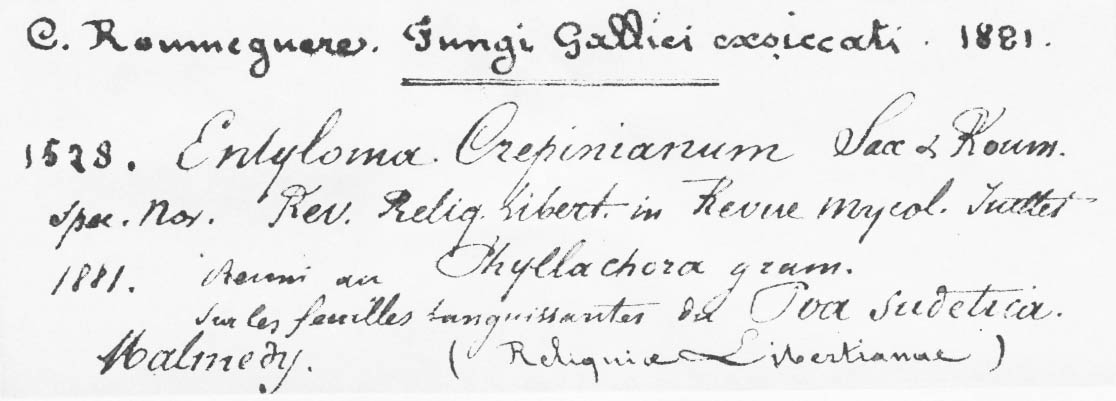 C. Roumeguere. Fungi Gallici exsiccati. 1881.
1528. Entyloma Crepinianum Sac & Roum.
Spec. Nov. Rev. Reliq. Libert. in Revue Mycol. Juillet
1881. Reuni au Phyllachora gram.
Sur les feuilles languissantes du Poa sudetica.
Malmedy. (Reliquiæ Libertianae)